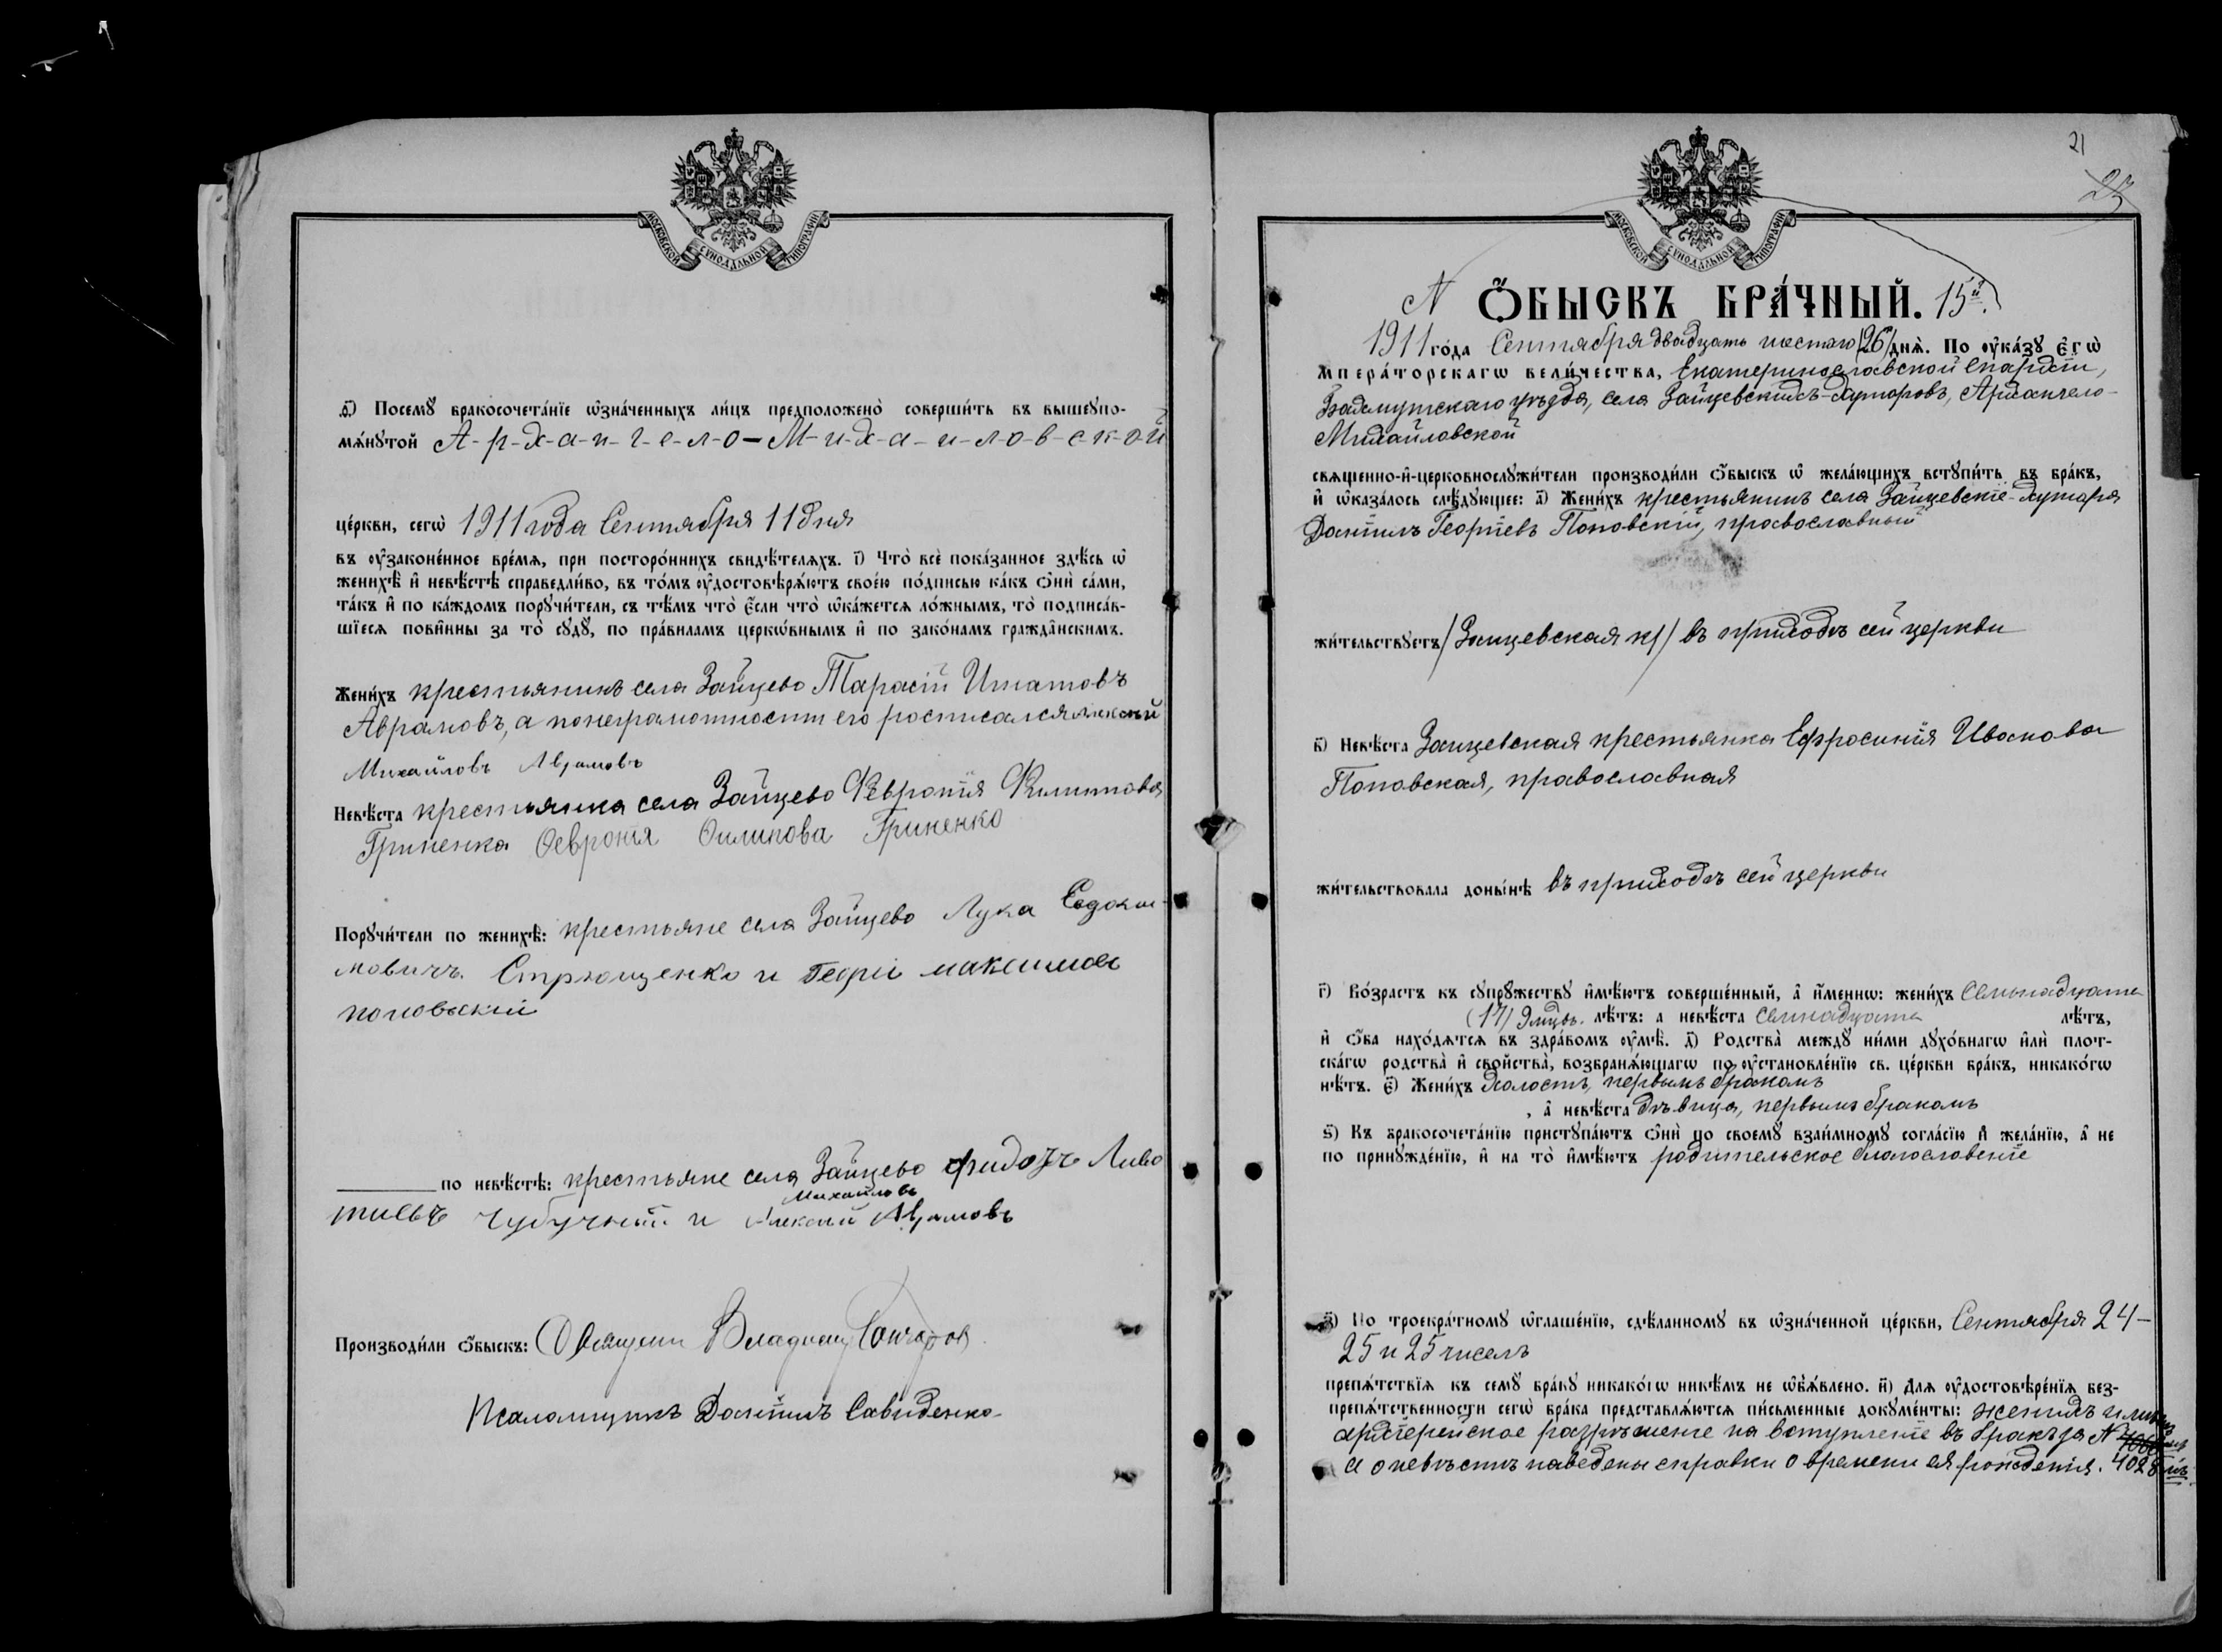 МОСКОВСКОЙ СѴНОДАЛЬНОЙ ТИПОГРАФІИ
ѳ҃) Посемꙋ̀ бракосочета́нїе ѡ҆зна́ченныхъ ли́цъ предположено̀ соверши́ть въ вышеꙋпо-
мѧ́нꙋтой А-р-х-а-н-г-е-л-о-М-и-х-а-и-л-о-в-с-к-о-й
це́ркви, сегѡ̀ 1911 года Сентября 11 дня
въ ᲂу҆законе́нное вре́мѧ, при посторо́ннихъ свидѣ́телѧхъ. і҃) Что̀ всѐ пока́занное здѣ́сь ѡ҆
женихѣ̀ и҆ невѣ́стѣ справедли́во, въ то́мъ ᲂу҆достовѣрѧ́ютъ свое́ю по́дписью ка́къ ѻ҆нѝ са́ми,
та́къ и҆ по ка́ждомъ порꙋчи́тели, съ тѣ́мъ что̀ є҆́сли что̀ ѡ҆ка́жетсѧ ло́жнымъ, то̀ подписа́в-
шїесѧ пови́нны за то̀ сꙋдꙋ̀, по пра́виламъ церкѡ́внымъ и҆ по зако́намъ гражда̑нскимъ.
Жени́хъ крестьянинъ села Зайцево Тарасій Игнатовъ
Аврамовъ, а по неграмотности его росписался Алексѣй
Михайловъ Аврамовъ
Невѣ́ста крестьянка села Зайцево Февронія Филиппова
Гриненка Ѳевронія Ѳилипова Гриненко
Порꙋчи́тели по женихѣ̀: крестьяне села Зайцево Лука Евдоки-
мовичъ Стрющенко и Георгі максимов
поповскій
по невѣ́стѣ: крестьяне села Зайцево
Михайловъ
и Алексѣй Аврамовъ
Производи́ли ѻ҆́быскъ: Священ Владимір Гончаров
Псаломщикъ Даніилъ Савиденко
21
23
МОСКОВСКОЙ СѴНОДАЛЬНОЙ ТИПОГРАФІИ
N Ѻ҆́БЫСКЪ БРА́ЧНЫЙ. 15й.
1911 го́да Сентября двадцать шестаго /26/ днѧ̀. По ᲂу҆ка́зꙋ є҆гѡ̀
и҆мпера́торскагѡ вели́чества, Екатеринославской епархіи,
Бахмутскаго уѣзда, села Зайцевскихъ-Хуторовъ, Архангело-
Михайловской
свѧще́нно-и҆-церковнослꙋжи́тели производи́ли ѻ҆́быскъ ѡ҆ жела́ющихъ встꙋпи́ть въ бра́къ,
и҆ ѡ҆каза́лось слѣ́дꙋющее: а҃) Жени́хъ крестьянинъ села Зайцевскіе-Хутора
Даніилъ Георгіевъ Поповскій, православный
жи́тельствꙋетъ /Зайцевская к/ въ приходѣ сей церкви
в҃) Невѣ́ста Зайцевская крестьянка Ефросинія Иванова
Поповская, православная
жи́тельствовала доны́нѣ въ приходѣ сей церкви
г҃) Во́зрастъ къ сꙋпрꙋ́жествꙋ и҆мѣ́ютъ соверше́нный, а҆ и҆́меннѡ: жени́хъ Семнадцати
(17) 9 мцвъ. лѣ́тъ: а невѣ́ста Семнадцати лѣ́тъ,
и҆ ѻ҆́ба нахо́дѧтсѧ въ здра́вомъ ᲂу҆мѣ̀. д҃) Родства̀ междꙋ ни́ми дꙋхо́внагѡ и҆лѝ плот-
ска́гѡ родства̀ и҆ сво́йства, возбранѧ́ющагѡ по ᲂу҆становле́нїю св. це́ркви бра́къ, никако́гѡ
нѣ́тъ. є҃) Жени́хъ холостъ, первымъ бракомъ
, а҆ невѣ́ста дѣвица, первымъ бракомъ
ѕ҃) Къ бракосочета́нїю пристꙋпа́ютъ ѻ҆нѝ по своемꙋ̀ взаи́мномꙋ согла́сїю и҆ жела́нїю, а҆ не
по принꙋжде́нїю, и҆ на то̀ и҆мѣ́ютъ родительское благословеніе
з҃) По троекра́тномꙋ ѡ҆глаше́нїю, сдѣ́ланномꙋ въ ѡ҆зна́ченной це́ркви, Сентября 24-
25 и 25 чиселъ
препѧ́тствїѧ къ семꙋ̀ бра́кꙋ никако́гѡ никѣ́мъ не ѡ҆б̾ѧ́влено. и҃) Длѧ ᲂу҆достовѣре́нїѧ без-
препѧ́тственности сегѡ̀ бра́ка представлѧ́ютсѧ пи́сьменные докꙋме́нты: женихъ имѣетъ
архіерейское разрѣшеніе на вступленіе въ бракъ за N
а о невѣстѣ наведены справки о времени ея рожденія. 4028